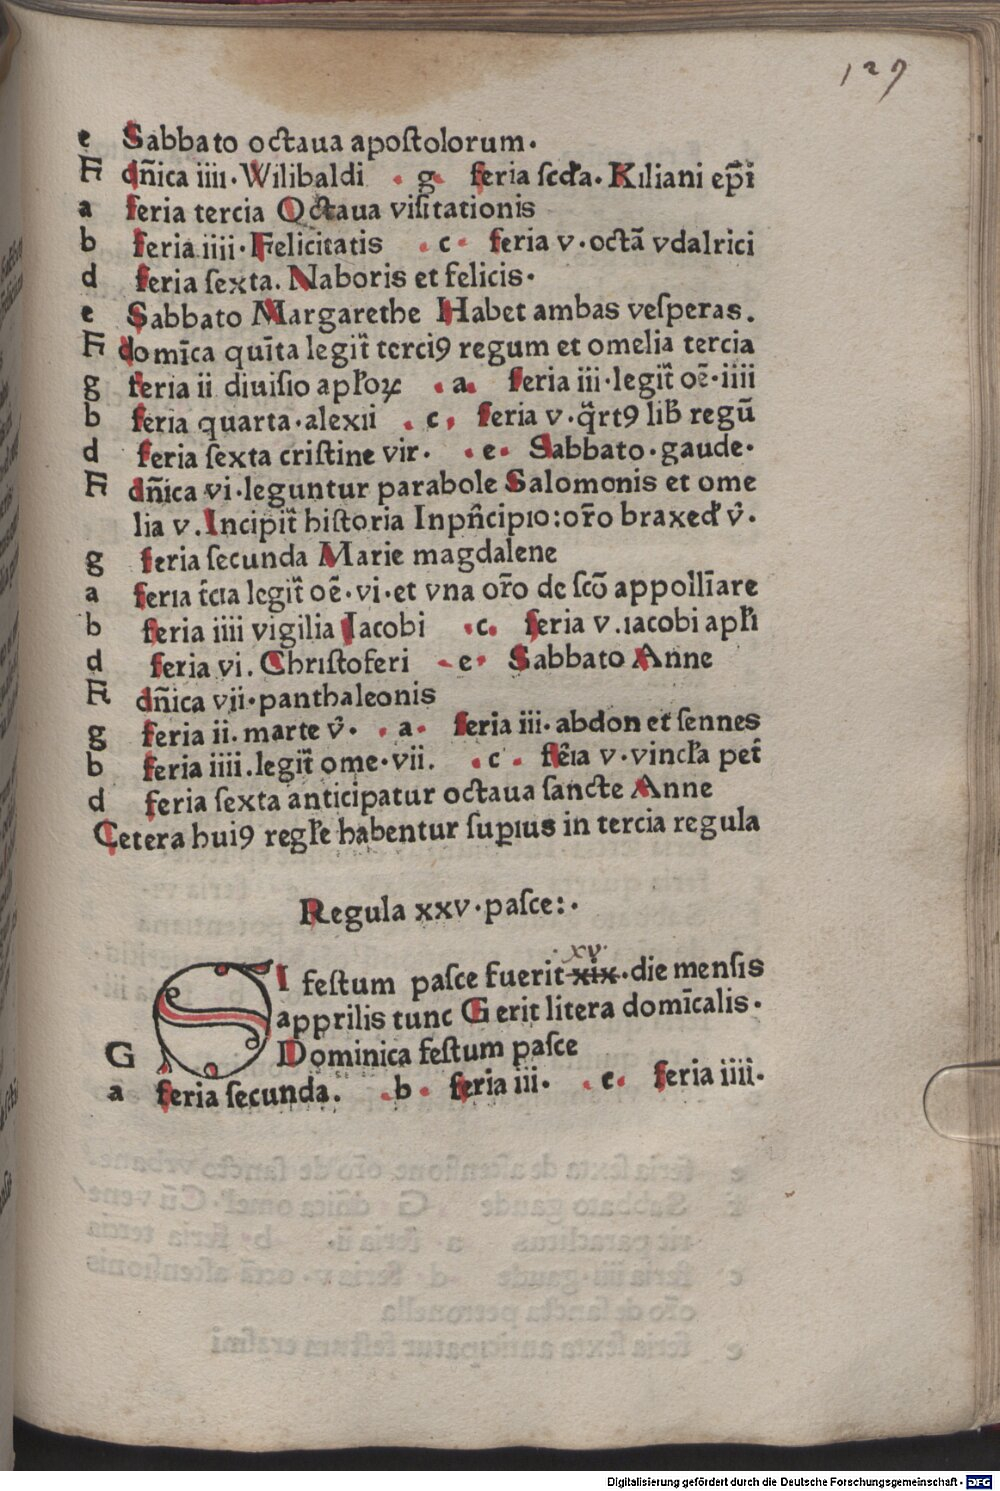 129
e Sabbato octaua apostolorum.
F dn̄ica iiii. Wilibaldi . g. feria scd̓a. Kiliani ep̄i
a feria tercia Octaua visitationis
b feria iiii. Felicitatis . c. feria v. octā vdalrici
d feria sexta. Naboris et felicis.
e Sabbato Margarethe Habet ambas vesperas.
F domīca quīta legit̄ terciꝰ regum et omelia tercia
g feria ii diuisio apl̓oꝝ . a. feria iii. legit̄ oē. iiii
b feria quarta. alexii . c. feria v. q̄rtꝰ lib̄ regū
d feria sexta cristine vir. . e. Sabbato. gaude.
F dn̄ica vi. leguntur parabole Salomonis et ome
lia v. Incipit̄ historia Inpn̄cipio: or̄o braxed̓ v̓.
g feria secunda Marie magdalene
a feria t̓cia legit̄ oē. vi. et vna or̄o de scō appollīare
b feria iiii vigilia Jacobi . c. feria v. iacobi apl̓i
d feria vi. Christoferi . e. Sabbato Anne
F dn̄ica vii. panthaleonis
g feria ii. marte v̓. . a. feria iii. abdon et sennes
b feria iiii. legit̄ ome. vii. . c. fēia v. vincl̓a pet̓
d feria sexta anticipatur octaua sancte Anne
Cetera huiꝰ regl̓e habentur supius in tercia regula
Regula xxv. pasce:.
xv.
SI festum pasce fuerit xix. die mensis
apprilis tunc G erit litera domīcalis.
G Dominica festum pasce
a feria secunda. . b. feria iii. . c. feria iiii.
Digitalisierung gefördert durch die Deutsche Forschungsgemeinschaft - DFG